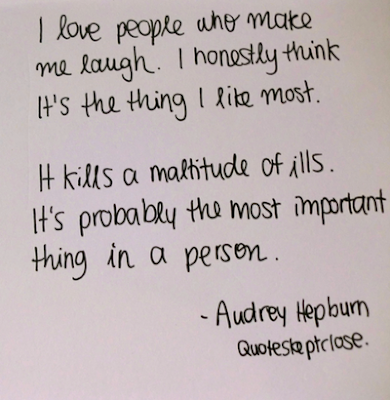 I love people who make
me laugh. I honestly think
It's the thing I like most.
It kills a maltitude of ills.
It's probably the most important
thing in a person.
- Audrey Hepburn
Quoteskeptclose.